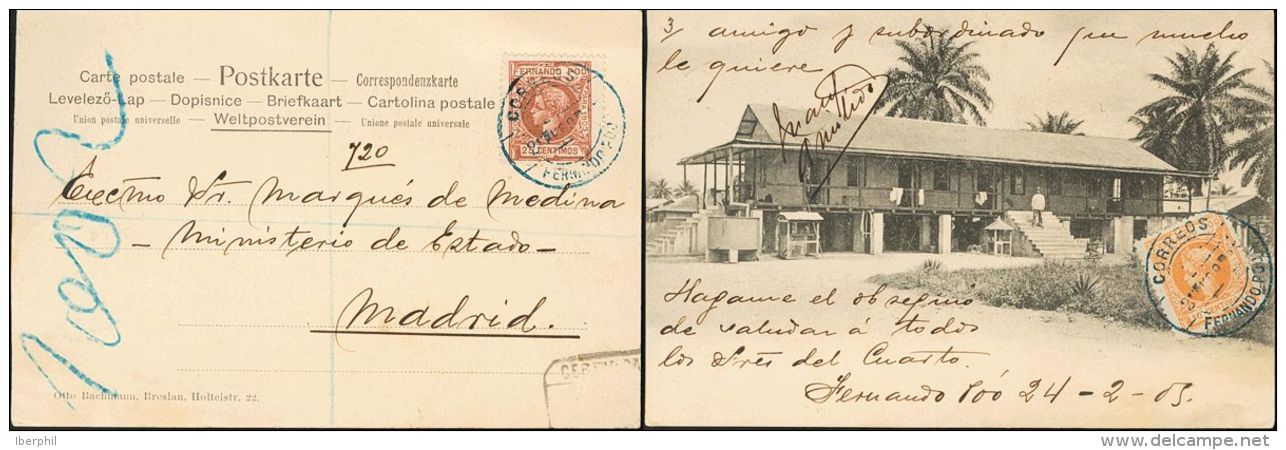 Carte postale — Postkarte — Correspondenzkarte
Levelező-Lap — Dopisnice — Briefkaart — Cartolina postale
Union postale universelle — Weltpostverein — Unione postale universale
FERNANDO POO
25 CENTIMOS
CORREOS
FERNANDO POO
720
Excmo Sr. Marqués de Medina
- Ministerio de Estado -
Madrid.
Otto Bachmann, Breslau, Holteistr. 22.
3/ amigo y subordinado que mucho
le quiere
CORREOS
FERNANDO POO
Hagame el obsequio
de saludar á todos
los Sres del Cuarto.
Fernando Póo 24 - 2 - 05.
Iberphil
www.delcampe.net